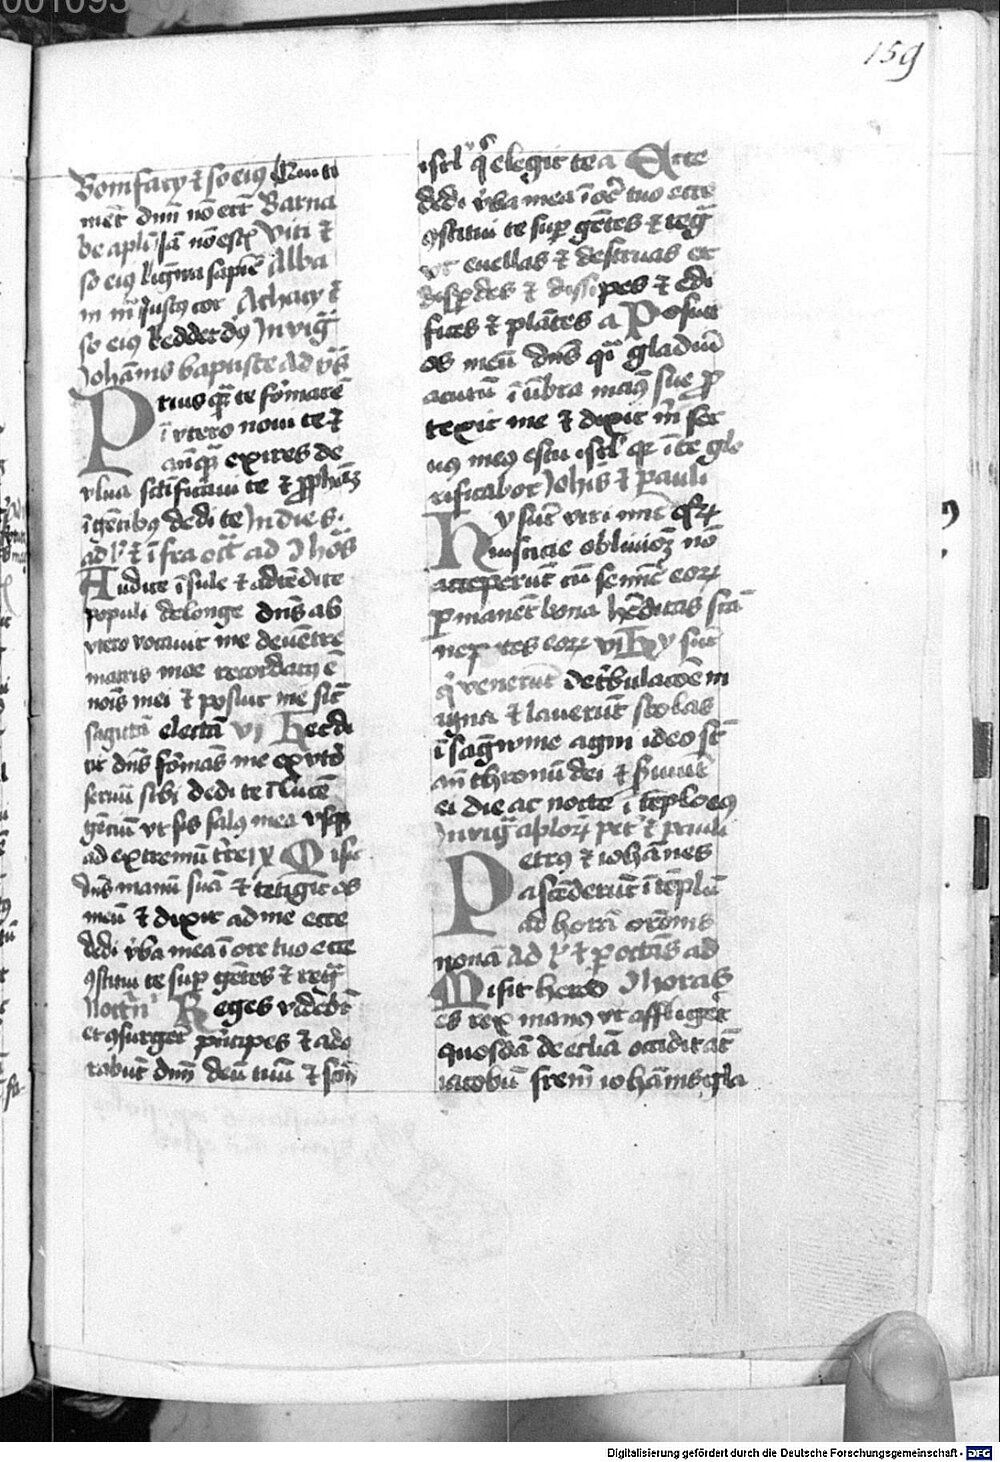 159
Bonifacÿ ⁊ soc̄ eiꝯ Qui ti
met dn̄m nō erit Barna
be apl̄i Jā nō estꝭ Viti ⁊
so eiꝯ lig̅wa sapiē Alba
ni m̄r̄ Justꝯ cor Achacÿ ⁊
so eiꝯ Reddet dꝯ In vig̅
Johānis baptiste Ad vs̄
Prius qᷓ te formarē
ī vtero noui te ⁊
anteqᷓ exires de
vlua sc̄ificaui te ⁊ ꝓph̄am
ī gētibꝯ dedi te In die s.
ad lꝰ ⁊ ī fra oct̄ ad J hos̄
Audite īsule ⁊ adtēdite
populi de longe dn̄s ab
vtero vocauit me de uētre
matris mee recordatꝯ ē
noīs mei ⁊ posuit me sic̄
sagittā electā Vj Hec di
cit dn̄s formās me ex vtō
seruū sibi dedi te ī lucē
gētiū vt sis salꝯ mea vsqꝫ
ad extremū tr̄e jx Misit
dn̄s manū suā ⁊ tetigit os
meū ⁊ dixit ad me ecce
dedi v̄ba mea ī ore tuo ecce
ꝯstitui te sup gētes ⁊ reg̅
Noct̄n̄ Reges videbt̄
et ꝯsurget̄ pn̄cipes ⁊ ado
rabūt dn̄m deū tuū ⁊ sc̄m
isrl̄ qͥ elegit te a Ecce
dedi v̄ba mea ī oē tuo ecce
ꝯstitui te sup gētes ⁊ reg̅
vt euellas ⁊ destruas et
disꝑdes ⁊ dissipes ⁊ edi
fices ⁊ plātes a Posuit
os meū dn̄s qͣ gladiū
acutū ī ūbra manꝯ sue ꝓ
texit me ⁊ dixit m̄ ser
uꝯ meꝯ es tu isrl̄ qꝛ ī te glo
rificabor Johīs ⁊ Pauli
Hÿ sūt viri mīe qͦꝝ
iusticie obliuiōeꝫ nō
acceperūt cū semīe eoꝝ
ꝑmanēt bona hēditas scā
nepotes eoꝝ Vj Hÿ sūt
qͥ venerūt de tbulacōe m
agna ⁊ lauerūt stolas
ī sāgwine agni ideo st̄
añ thronū dei ⁊ ẜuiūt
ei die ac nocte ī tēplo eiꝯ
In vig̅ aploꝝ pet̄ ⁊ pauli
Petrꝯ ⁊ iohānes
ascēderūt ī tēplū
ad horā orōnis
nonā Ad lꝰ ⁊ ꝑ octās ad
Misit herod J horas
es rex manꝯ vt affliget̄
quosdā de eccl̄ia occidit āt̄
iacobū frem̄ iohānis gla
Digitalisierung gefördert durch die Deutsche Forschungsgemeinschaft - DFG